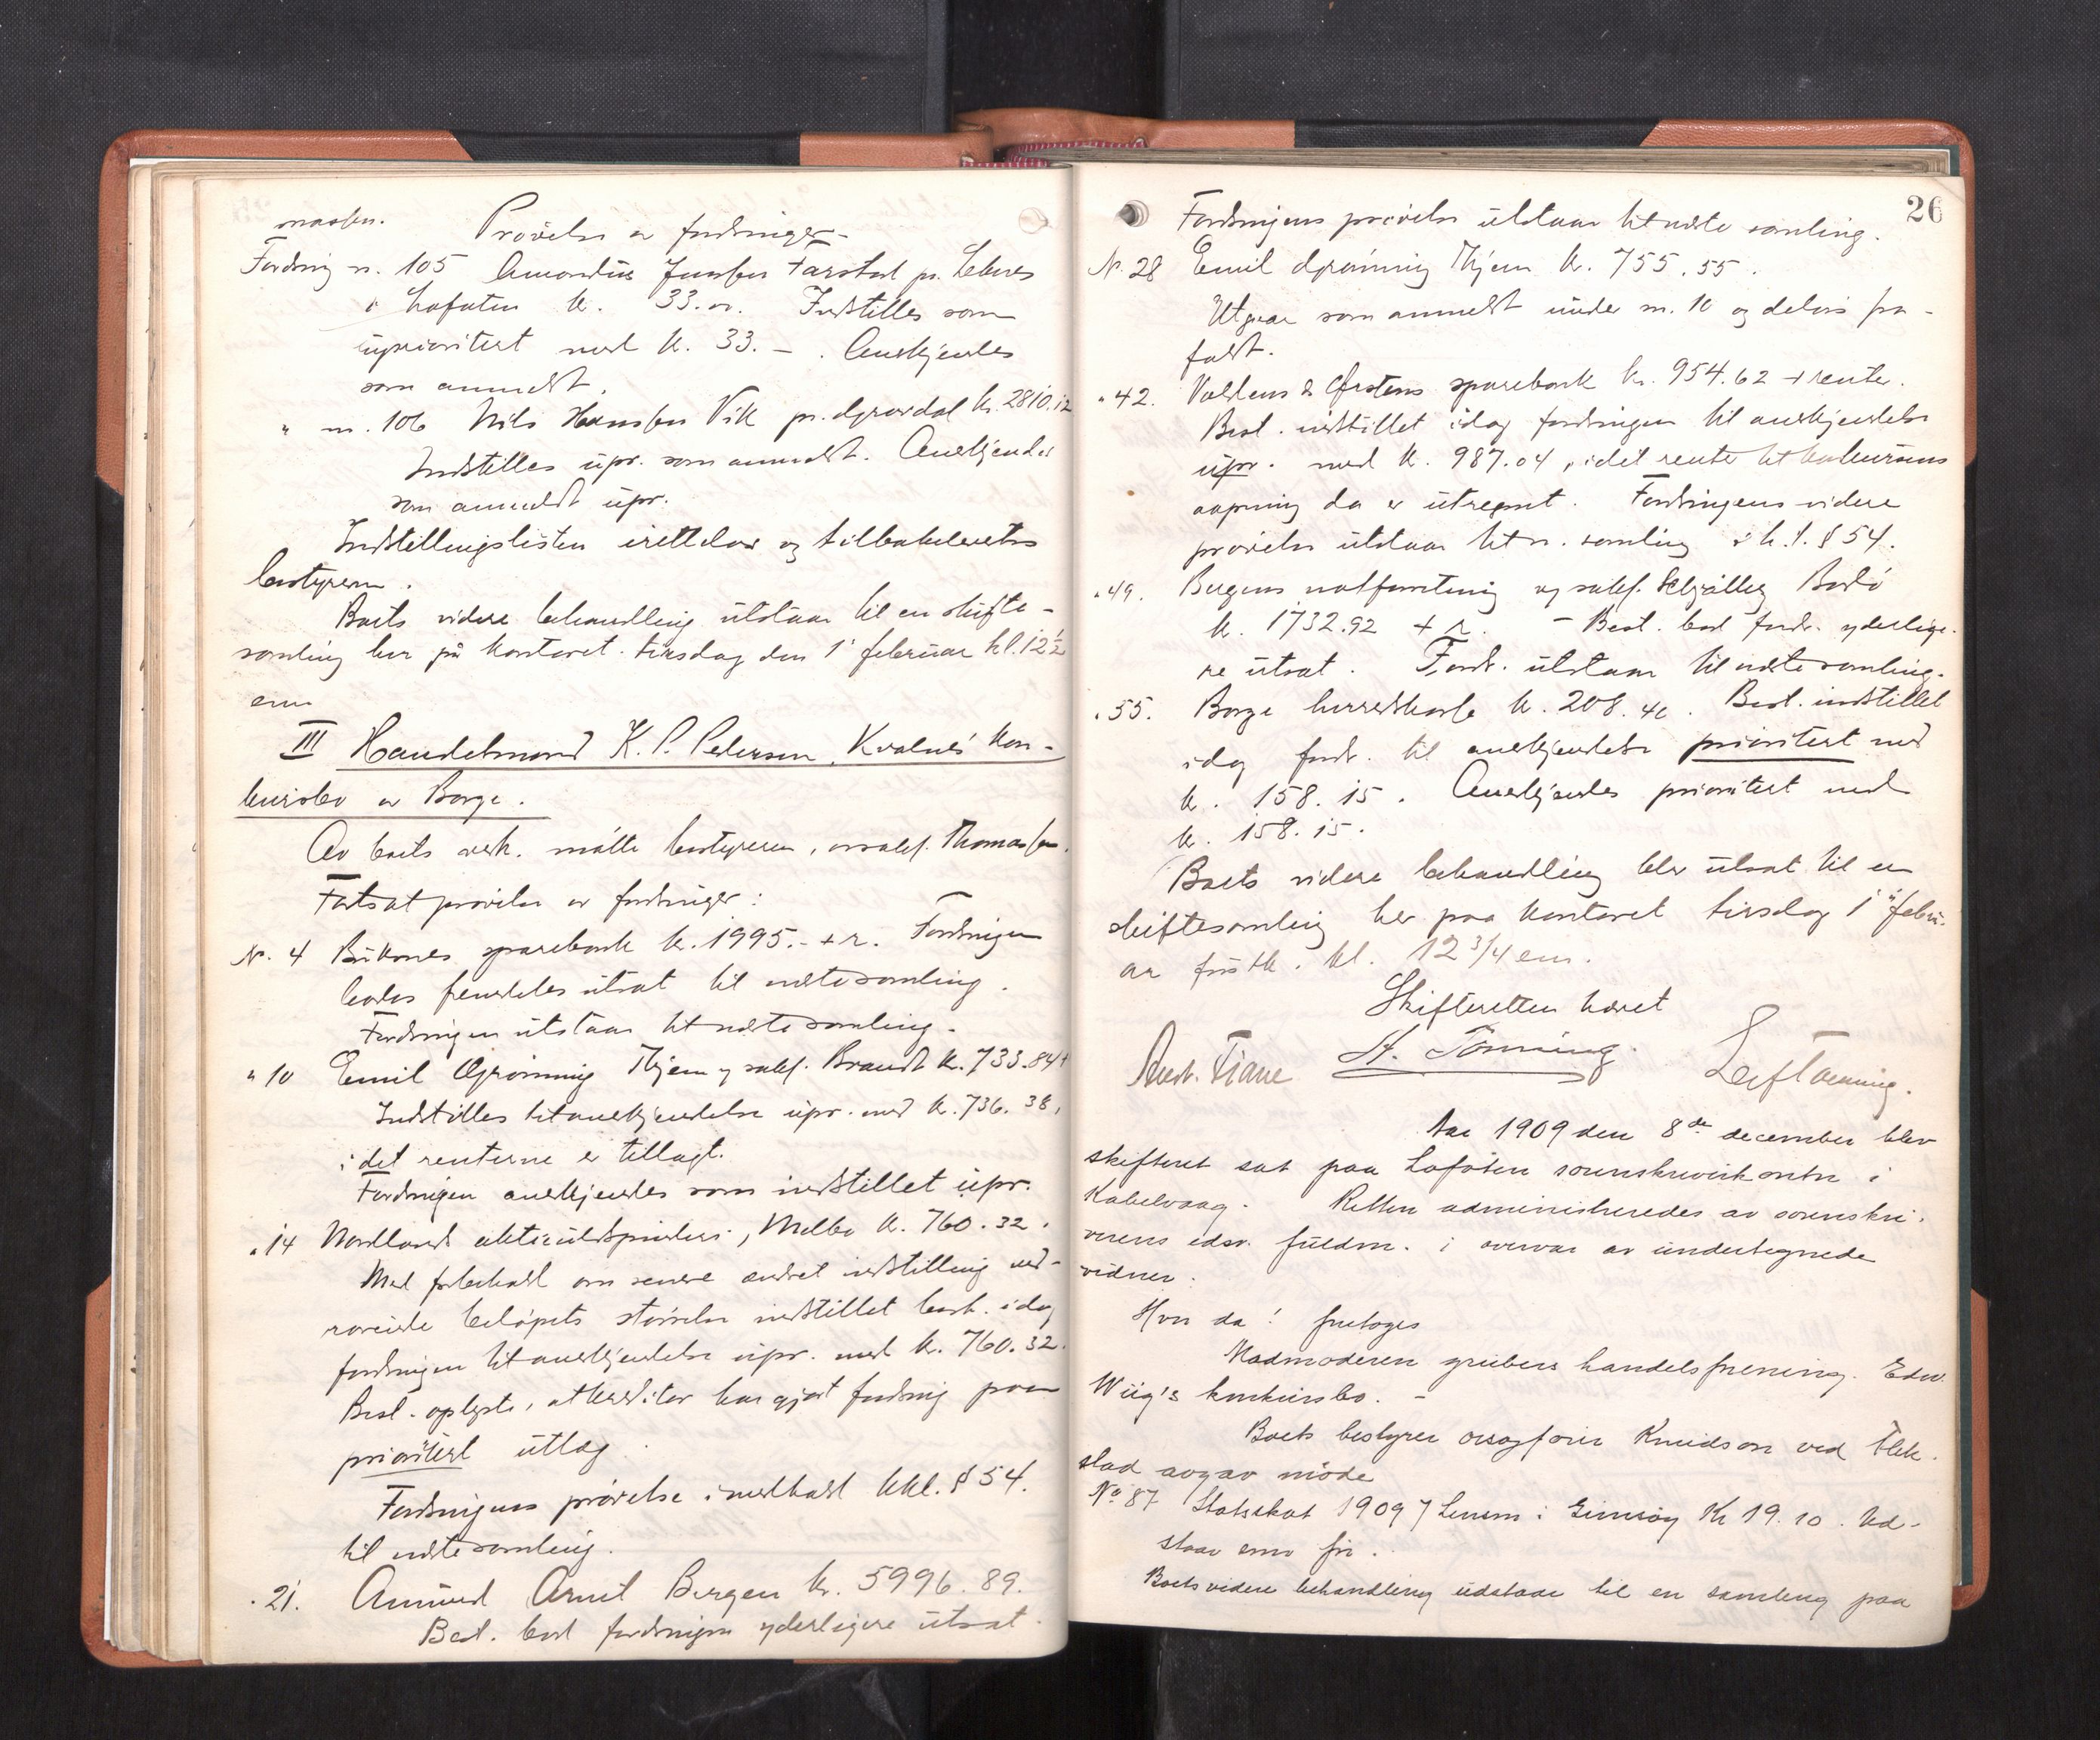 massen.
Prövelse av fordringer.
Fordring n. 105 Amandus Jenssen Farstad pr. Leknes
i Lofoten kr. 33.00. Indstilles som
uprioritert med kr. 33.— . Anerkjendes
som anmeldt.
" nr. 106 Nils Hanssen Vik pr. Gravdal kr. 2810.12
Indstilles upr. som anmeldt. Anerkjendes
som anmeldt upr.
Indstillingslisten irettelaes og tilbakeleveres
bestyreren.
Boets videre behandling utstaar til en skifte-
samling her på kontoret tirsdag den 1' februar kl. 12½
em.
III Handelsmand K. P. Pedersen, Kvalnes' kon-
kursbo av Borge.
Av boets vedk. mötte bestyreren, orsakf. Thomassen.
Fortsat prövelse av fordringer:
Nr. 4 Buksnes sparebank kr. 1995.- + r. Fordringen
bedes fremdeles utsat til næste samling.
Fordringen utstaar til næste samling.
" 10 Emil Grönning Thjem v. sakf. Brandt kr. 733.84 +
Indstilles til anerkjendelse upr. med kr. 736.38,
idet renterne er tillagt.
Fordringen anerkjendes som indstillet upr.
" 14 Nordlands aktieuldspinderi, Melbo kr. 760.32.
Med forbehold om senere ændret indstilling ved-
rörende belöpets störrelse indstillet best. idag
fordringen til anerkjendelse upr. med kr. 760.32.
Best. oplyste, at kreditor har gjort fordring paa
prioritert utlæg.
Fordringens prövelse i medhold kkl. § 54.
til næste samling.
" 21. Amund Bergen kr. 5996.89.
Best. bad fordringen yderligere utsat.
26
Fordringens prövelse utstaar til næste samling.
Nr. 28 Emil Grönning Thjem kr. 755.55.
Utgaar som anmeldt under nr. 10 og delvis fra-
faldt.
" 42. Voldens & Örstens sparebank kr. 954.62 + renter.
Best. indstillet idag fordringen til anerkjendelse
upr. med kr. 987.04, idet rente til konkursens
aapning da er utregnet. Fordringens videre
prövelse utstaar til n. samling i k.l. § 54.
" 49. Bergens notforretning v. sakf. Bodö
kr. 1732.92 + r. – Best. bad fordr. yderlige-
re utsat. Fordr. utstaar til næste samling.
" 55. Borge herredskasse kr. 208.40. Best. indstillet
idag fordr. til anerkjendelse prioritert med
kr. 158.15. Anerkjendes prioritert med
kr. 158.15.
Boets videre behandling blev utsat til en
skiftesamling her paa kontoret tirsdag 1' febru-
ar förstk. kl. 12 3/4 em.
Skifteretten hævet
Andr. Fiane A. Tönning. Leif Tønning.
Aar 1909 den 8de december blev
skifteret sat paa Lofoten sorenskriverkontor i
Kabelvaag. Retten administreredes av sorenskri-
verens edsv. fuldm. i overvær av undertegnede
vidner.
Hvor da! foretoges
Madmoderen grubers handelsforening. Edv.
Wiig's konkursbo. –
Boets bestyrer orsagförer Knudson ved Flek-
stad avgav möde
No 87 Statsskat 1909 v Lensm i Gimsöy Kr 19.10. Ud-
staar em for.
Boets videre behandling udstaar til en samling paa